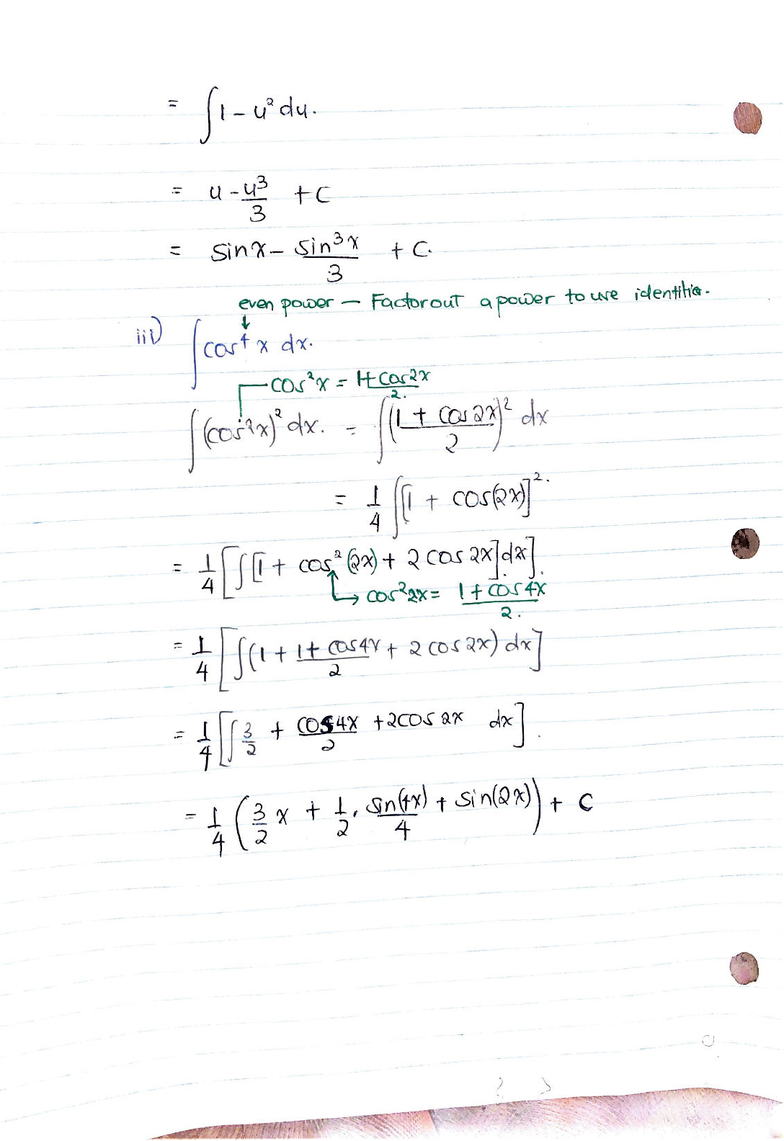 = ∫1 - u² du.
= u - u³/3 + C
= Sin x - Sin³x/3 + C.
even power — Factor out a power to use identities.
iii) ∫cos⁴ x dx.
cos²x = 1+cos2x/2.
∫(cos²x)² dx. = ∫(1 + cos 2x/2)² dx
= 1/4 ∫[1 + cos(2x)]².
= 1/4 [∫[1 + cos²(2x) + 2 cos 2x] dx].
↳ cos²2x = 1 + cos 4x/2.
= 1/4 [∫(1 + 1 + cos4x/2 + 2 cos 2x) dx]
= 1/4 [∫ 3/2 + cos4x/2 + 2cos 2x dx].
= 1/4 (3/2 x + 1/2 . Sin(4x)/4 + Sin(2x)) + C